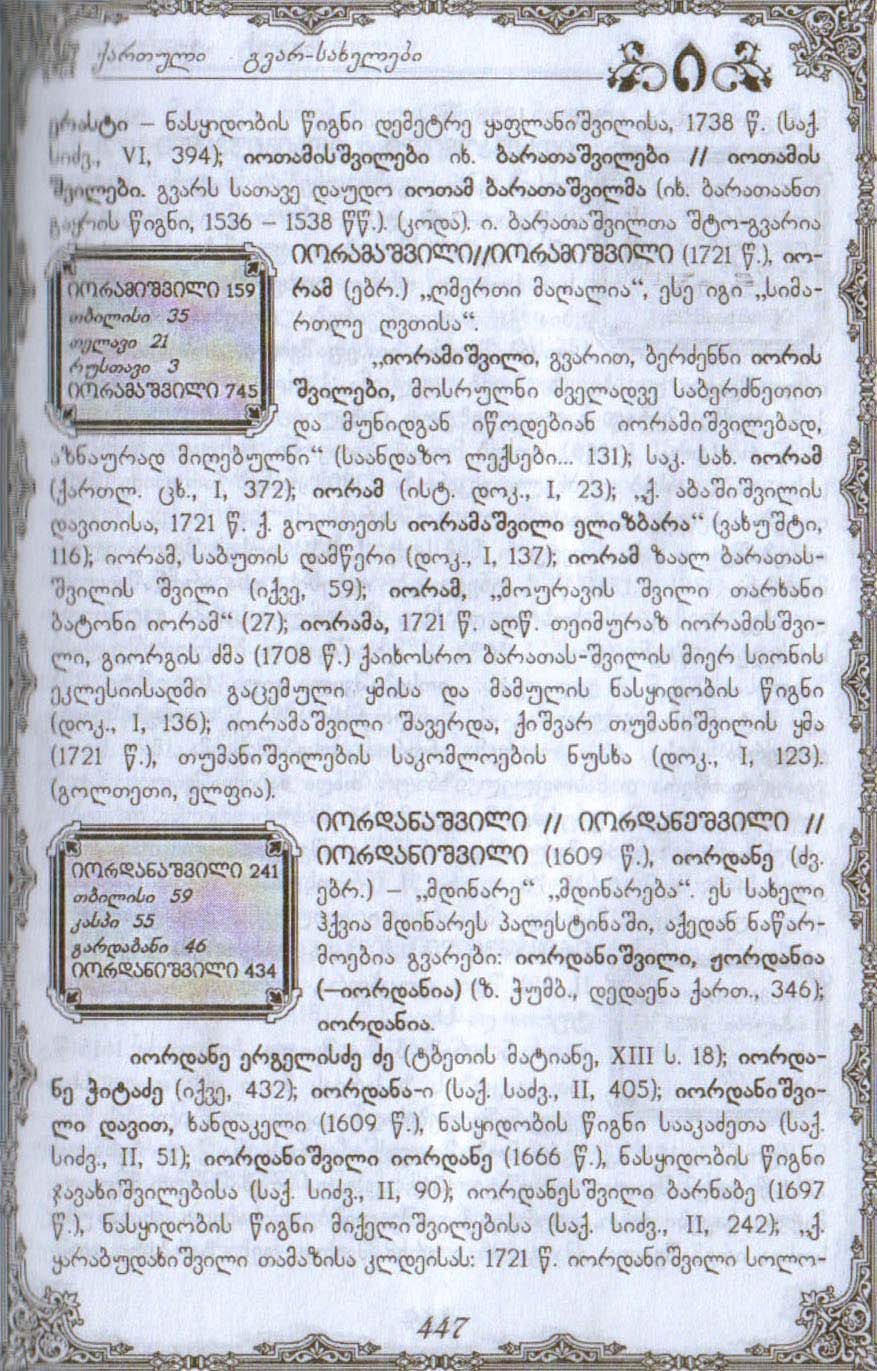 ქართული გვარ-სახელები
ი
ერასტი – ნასყიდობის წიგნი დემეტრე ყაფლანიშვილისა, 1738 წ. (საქ.
სიძვ., VI, 394); იოთამისშვილები იხ. ბარათაშვილები // იოთამის
შვილები. გვარს სათავე დაუდო იოთამ ბარათაშვილმა (იხ. ბარათაანთ
გაყრის წიგნი, 1536 – 1538 წწ.). (კოდა). ი. ბარათაშვილთა შტო-გვარია
იორამაშვილი//იორამიშვილი (1721 წ.), იო-
რამ (ებრ.) „ღმერთი მაღალია“, ესე იგი „სიმა-
რთლე ღვთისა“.
„იორამიშვილი, გვარით, ბერძენნი იორის
შვილები, მოსრულნი ძველადვე საბერძნეთით
და მუნიდგან იწოდებიან იორამიშვილებად,
იორამიშვილი 159
თბილისი 35
თელავი 21
რუსთავი 3
იორამაშვილი 745
აზნაურად მიღებულნი“ (საანდაზო ლექსები... 131); საკ. სახ. იორამ
(ქართლ. ცხ., I, 372); იორამ (ისტ. დოკ., I, 23); „ქ. აბაშიშვილის
დავითისა, 1721 წ. ქ. გოლთეთს იორამაშვილი ელიზბარა“ (ვახუშტი,
116); იორამ, საბუთის დამწერი (დოკ., I, 137); იორამ ზაალ ბარათას-
შვილის შვილი (იქვე, 59); იორამ, „მოურავის შვილი თარხანი
ბატონი იორამ“ (27); იორამა, 1721 წ. აღწ. თეიმურაზ იორამისშვი-
ლი, გიორგის ძმა (1708 წ.) ქაიხოსრო ბარათას-შვილის მიერ სიონის
ეკლესიისადმი გაცემული ყმისა და მამულის ნასყიდობის წიგნი
(დოკ., I, 136); იორამაშვილი შავერდა, ქიშვარ თუმანიშვილის ყმა
(1721 წ.), თუმანიშვილების საკომლოების ნუსხა (დოკ., I, 123).
(გოლთეთი, ელფია).
იორდანაშვილი // იორდანეშვილი //
იორდანიშვილი (1609 წ.), იორდანე (ძვ.
ებრ.) – „მდინარე“ „მდინარება“. ეს სახელი
ჰქვია მდინარეს პალესტინაში, აქედან ნაწარ-
მოებია გვარები: იორდანიშვილი, ჟორდანია
(–იორდანია) (ზ. ჭუმბ., დედაენა ქართ., 346);
იორდანია.
იორდანაშვილი 241
თბილისი 59
კასპი 55
გარდაბანი 46
იორდანიშვილი 434
იორდანე ერგელისძე ძე (ტბეთის მატიანე, XIII ს. 18); იორდა-
ნე ჭიტაძე (იქვე, 432); იორდანა-ი (საქ. საძვ., II, 405); იორდანიშვი-
ლი დავით, ხანდაკელი (1609 წ.), ნასყიდობის წიგნი სააკაძეთა (საქ.
სიძვ., II, 51); იორდანიშვილი იორდანე (1666 წ.), ნასყიდობის წიგნი
ჯავახიშვილებისა (საქ. სიძვ., II, 90); იორდანესშვილი ბარნაბე (1697
წ.), ნასყიდობის წიგნი მიქელიშვილებისა (საქ. სიძვ., II, 242); „ქ.
ყარაბუდახიშვილი თამაზისა კლდეისას: 1721 წ. იორდანიშვილი სოლო-
447